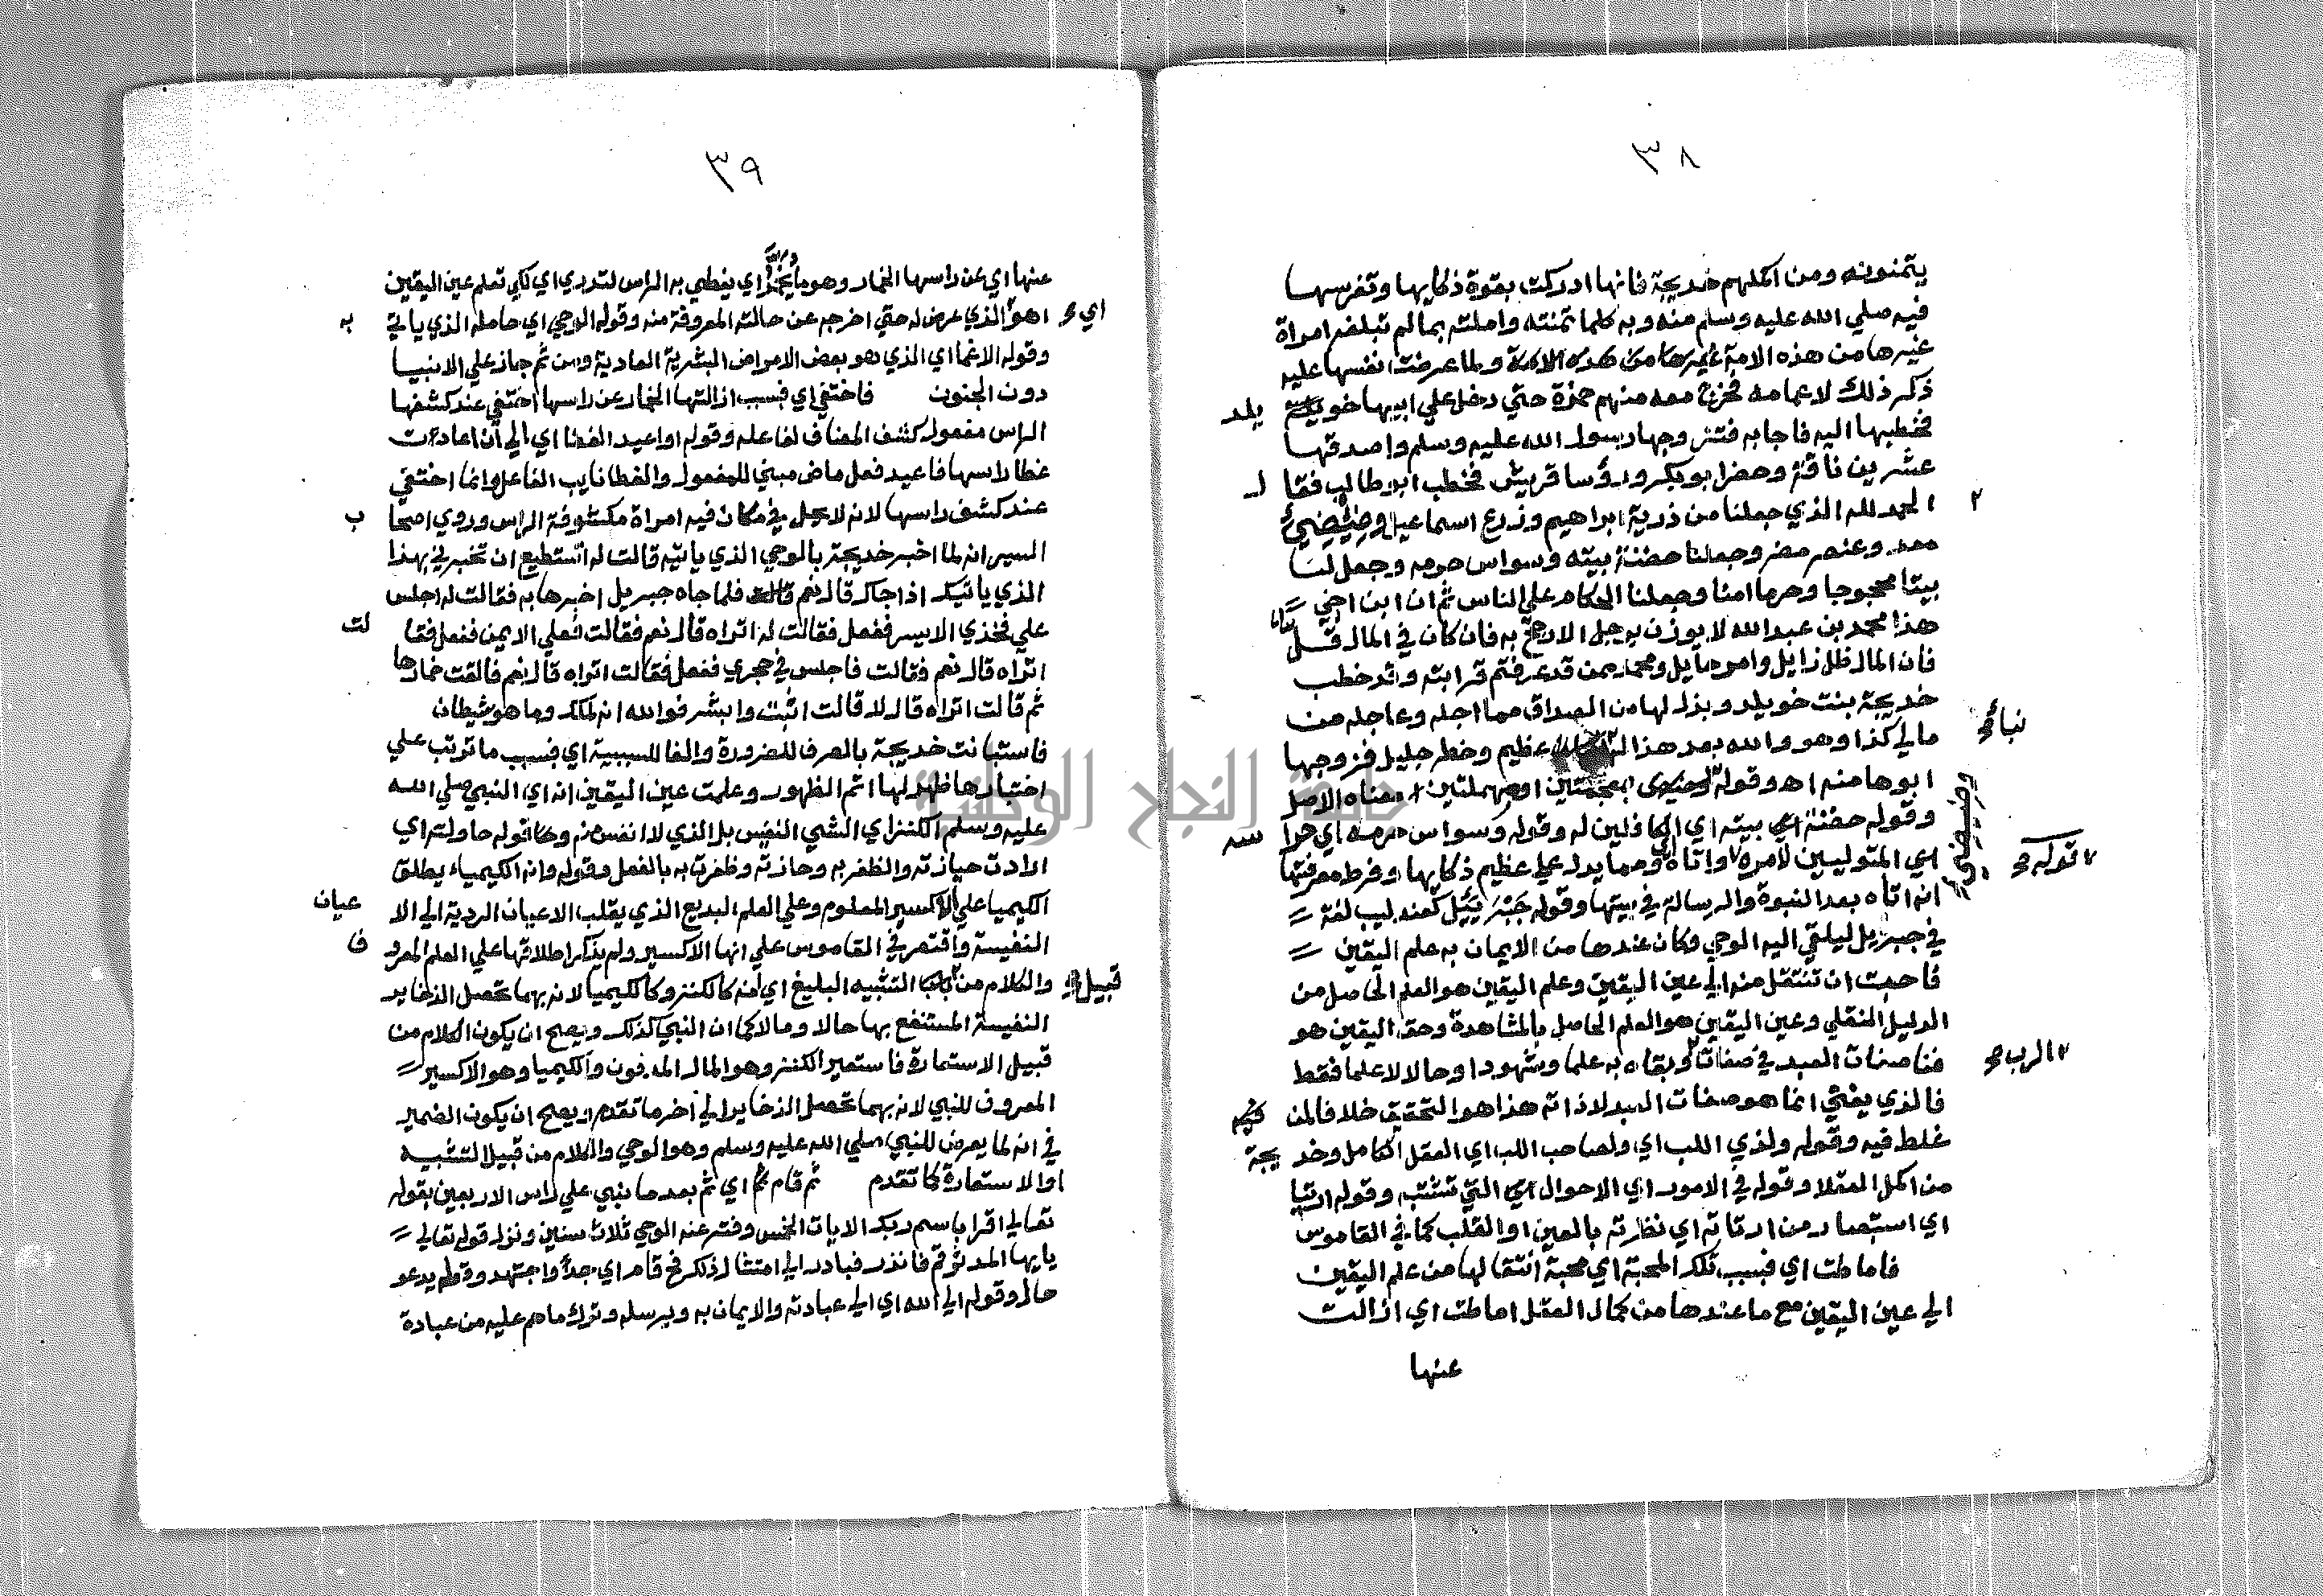 ٣٨
يتمنونه ومن اكملهم خديجة فانها ادركت بقوة ذكايها وتفرسها
فيه صلي الله عليه وسلم منه وبه كلما تمنته واملته بما لم تبلغه امراة
غيرها من هذه الامة غيرها من هذه الامة ولما عرضت نفسها عليه
ذكر ذلك لاعمامه فخرج معه منهم حمزة حتي دخل علي ابيها خويلد
فخطبها اليه فاجابه فتزوجها رسول الله عليه وسلم واصدقها
عشرين ناقة وحضر ابو بكر ورؤسا قريش فخطب ابو طالب فقال
الحمد لله الذي جعلنا من ذرية ابراهيم وزرع اسماعيل وضيضيء
معد وعنصر مضر وجعلنا حضنة بيته وسواس حرمه وجعل لنا
بيتا محجوجا وحرما امنا وجعلنا الحكام علي الناس ثم ان ابن اخي
هذا محمد بن عبد الله لا يوزن به رجل الا رجح به فان كان في المال قل
فان المال ظل زايل وامر حايل ومحمد ممن قد عرفتم قرابته وقد خطب
خديجة بنت خويلد وبذل لها من الصداق مما اجله وعاجله من
مالي كذا وهو والله بعد هذا له نبا عظيم وخطر جليل فزوجها
ابوها منه اهـ وقوله وضيضيء بمعجمتين او مهملتين معناه الاصل
وقوله حضنة بيته اي الكافلين له وقوله وسواس حرمه اي حراسه
اي المتوليين لامره قوله واتاه اي ومما يدل علي عظيم ذكايها وفرط معرفتها
انه اتاه بعد النبوة والرسالة في بيتها وقوله جبرئيل كعندليب لغة
في جبريل ليلقي اليه الوحي وكان عندها من الايمان به علم اليقين
فاحبت ان تنتقل منه الي عين اليقين وعلم اليقين هو العلم الحاصل من
الدليل النقلي وعين اليقين هو العلم الحاصل بالمشاهدة وحق اليقين هو
فنا صفات العبد في صفات الرب وبقاه به علما وشهودا وحالا لا علما فقط
فالذي يفني انما هو صفات العبد لا ذاته هذا هو التحقيق خلافا لمن
غلط فيه وقوله ولذي اللب اي ولصاحب اللب اي العقل الكامل وخديجة
من اكمل العقلا وقوله في الامور اي الاحوال التي تشتبه وقوله ارتيا
اي استبصار من ارتاته اي نظرته بالعين او القلب كما في القاموس
فاماطت اي فبسبب تلك المحبة اي محبة انتقالها من علم اليقين
الي عين اليقين مع ما عندها من كمال العقل اماطت اي ازالت
عنها
٣٩
عنها اي عن راسها الخمار وهو ما يخمر اي يغطي به الراس لتدري اي لكي تعلم عين اليقين
اهو الذي عرض له حتي اخرجه عن حالته المعروفة منه وقوله الوحي اي حامله الذي ياتي به
وقوله الاغما اي الذي هو بعض الامراض البشرية العادية ومن ثم جاز علي الانبيا
دون الجنون فاختفي اي فبسبب ازالتها الخمار عن راسها اختفي عند كشفها
الراس مفعول كشف المضاف لفاعله وقوله او اعيد الغطا اي الي ان اعادت
غطا راسها فاعيد فعل ماض مبني للمفعول والغطا نايب الفاعل وانما اختفي
عند كشف راسها لانه لا يحل في مكان فيه امراة مكشوفة الراس وروي اصحاب
السير انه لما اخبر خديجة بالوحي الذي ياتيه قالت له اتستطيع ان تخبرني بهذا
الذي ياتيك اذا جاك قال نعم فلما جاه جبريل اخبرها به فقالت له اجلس
علي فخذي الايسر ففعل فقالت له اتراه قال نعم فقالت فعلي الايمن ففعل فقالت
اتراه قال نعم فقالت فاجلس في حجري ففعل فقالت اتراه قال نعم فالقت خمارها
ثم قالت اتراه قال لا قالت اثبت وابشر فوالله انه لملك وما هو شيطان
فاستبانت خديجة بالصرف للضرورة والفا للسببية اي فبسبب ما ترتب علي
اختبارها ظهر لها اتم الظهور وعلمت عين اليقين انه اي النبي صلي الله
عليه وسلم الكنز اي الشي النفيس بل الذي لا انفس منه وقوله حاولته اي
ارادت حيازته والظفر به وحازته وظفرت به بالفعل وقوله وانه الكيمياء يطلق
الكيميا علي الاكسير المعلوم وعلي العلم البديع الذي يقلب الاعيان الردية الي الاعيان
النفيسة واقتصر في القاموس علي انها الاكسير ولم يذكر اطلاقها علي العلم المعروف
والكلام من قبيل التشبيه البليغ اي انه كالكنز وكالكيميا لانه بهما تحصل الذخاير
النفيسة المستنفع بها حالا ومالا كما ان النبي كذلك ويصح ان يكون الكلام من
قبيل الاستعارة فاستعير الكنز وهو المال المدفون والكيميا وهو الاكسير
المعروف للنبي لانه بهما تحصل الذخاير الي اخر ما تقدم ويصح ان يكون الضمير
في انه لما يعرض للنبي صلي الله عليه وسلم وهو الوحي والكلام من قبيل التشبيه
او الاستعارة كما تقدم ثم قام اي ثم بعد ما نبي علي راس الاربعين بقوله
تعالي اقرا باسم ربك الايات الخمس وفتر عنه الوحي ثلاث سنين ونزل قوله تعالي
يا ايها المدثر قم فانذر فبادر الي امتثال ذلك فح قام اي جد واجتهد وقوله يدعو
حال وقوله الي الله اي الي عبادته والايمان به وبرسله وترك ما هم عليه من عبادة
جامعة النجاح الوطنية